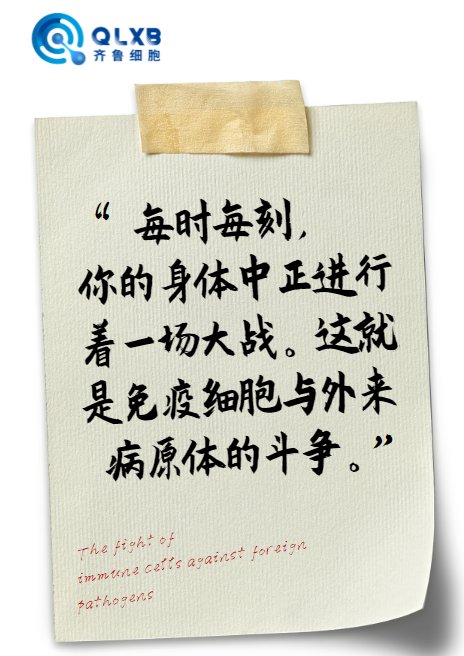 QLXB
齐鲁细胞
“ 每时每刻,
你的身体中正进行
着一场大战。这就
是免疫细胞与外来
病原体的斗争。”
The fight of
immune cells against foreign
pathogens